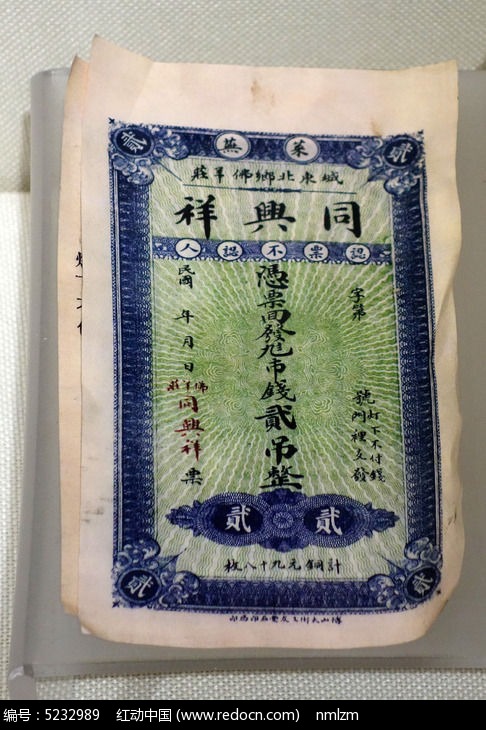 萊蕪
城東北鄉佛羊莊
同興祥
認票不認人
字第 號
灯下不付錢
門裡交發
憑票面發九八市錢貳吊整
民國 年 月 日
佛羊莊
同興祥
票
貳 貳
貳 貳
計銅元九十八枚
貳 貳
编号：5232989 红动中国 (www.redocn.com) nmlzm